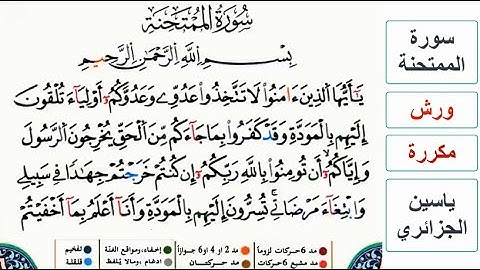 سُورَةُ الْمُمْتَحِنَة
بِسْمِ اللَّهِ الرَّحْمَٰنِ الرَّحِيمِ
يَٰٓأَيُّهَا اَ۬لذِينَ ءَامَنُواْ لَا تَتَّخِذُواْ عَدُوِّے وَعَدُوَّكُمُۥٓ أَوْلِيَآءَ تُلْقُونَ
إِلَيْهِم بِالْمَوَدَّةِ وَقَدْ كَفَرُواْ بِمَا جَآءَكُم مِّنَ اَ۬لْحَقِّ يُخْرِجُونَ اَ۬لرَّسُولَ
وَإِيَّاكُمُۥٓ أَن تُومِنُواْ بِاللَّهِ رَبِّكُمُۥٓ إِن كُنتُمْ خَرَجْتُمْ جِهَٰداٗ فِے سَبِيلِے
وَابْتِغَآءَ مَرْضَاتِے تُسِرُّونَ إِلَيْهِم بِالْمَوَدَّةِ وَأَنَآ أَعْلَمُ بِمَآ أَخْفَيْتُمْ
سورة
الممتحنة
ورش
مكررة
ياسين
الجزائري
مد 6 حركات لزوماً
مد 2 او 4 او 6 جوازاً
إخفاء، ومواقع الغنة
تفخيم
مد مشبع 6 حركات
مد حركتان
ادغام، ومالا يلفظ
قلقلة